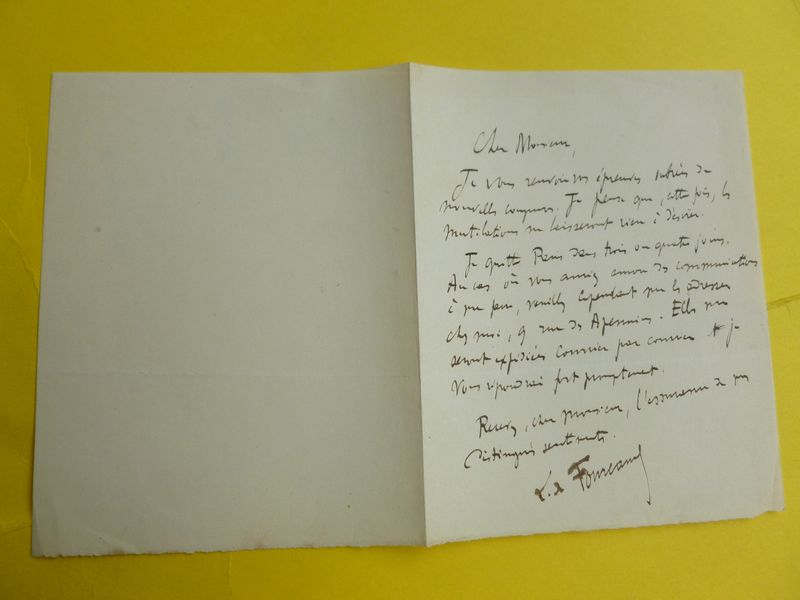 Cher Monsieur,
Je vous renvoie vos épreuves ornées de
nouvelles coupures. Je pense que, cette fois, les
mutilations ne laisseront rien à désirer.
Je quitte Paris dans trois ou quatre jours.
Au cas où vous auriez encore des communications
à me faire, veuillez cependant me les adresser
chez moi, 9 rue des Apennins. Elles me
seront expédiées courrier par courrier et je
vous répondrai fort promptement.
Recevez, cher monsieur, l'assurance de mes
distingués sentiments.
L. de Fourcaud